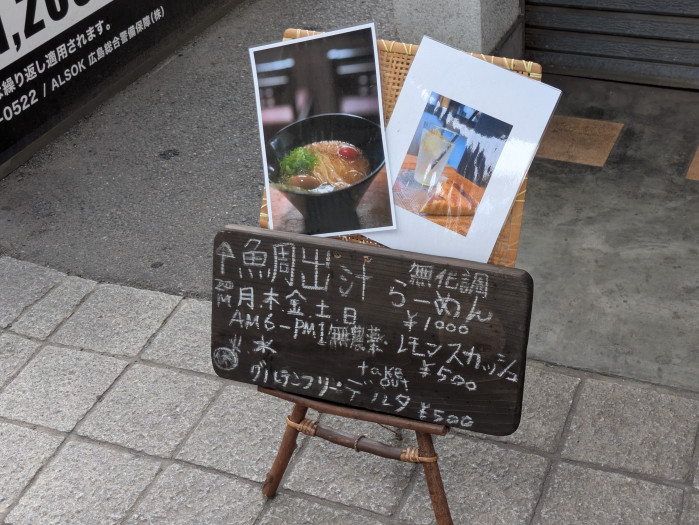 ,200
繰り返し適用されます。
-0522 / ALSOK 広島総合警備保障(株)
↑ 魚周出汁 無化調
20M らーめん
月木金土日 ¥1000
AM6-PM1 無農薬 レモンスカッシュ
火水 take out ¥500
グルテンフリー・デルタ ¥500